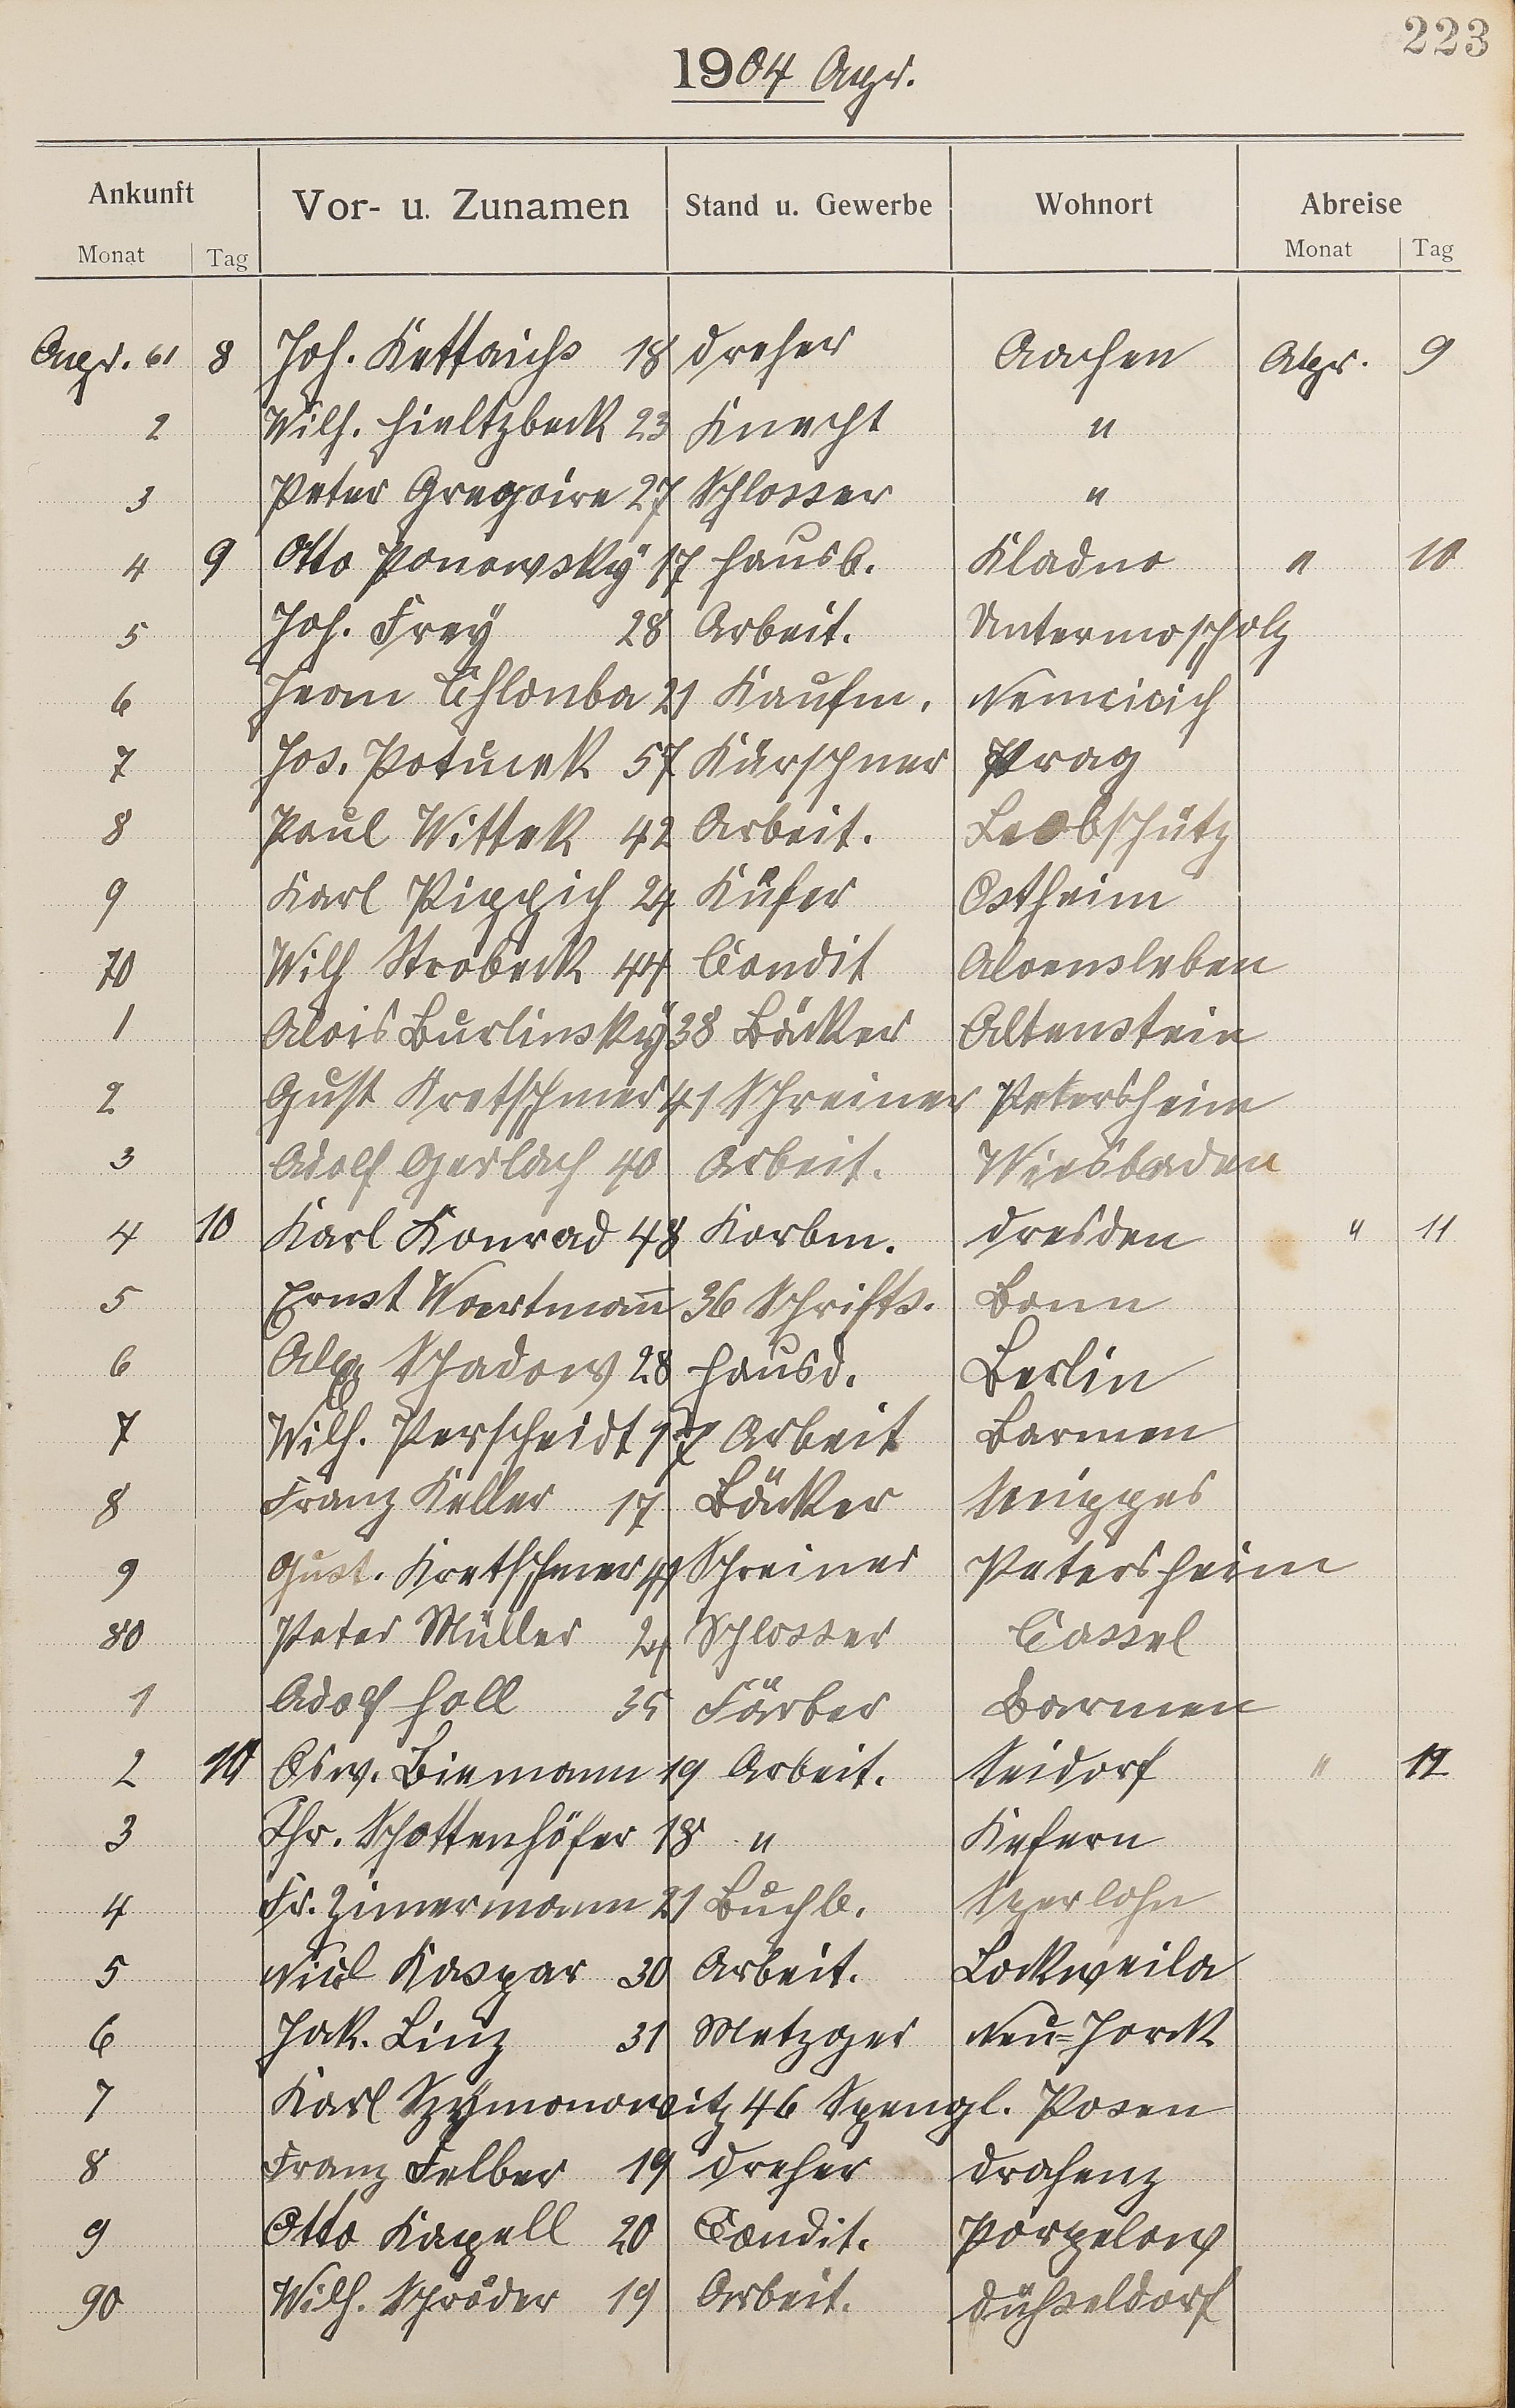 223
1904 Apr.
Ankunft Vor- u. Zunamen Stand u. Gewerbe Wohnort Abreise
Monat Tag Monat Tag
Apr. 61 8 Joh. Kettaichs 18 Dreher Aachen Apr. 9
2 Wilh. Hieltzbeck 23 Knecht "
3 Peter Gregoire 27 Schlosser "
4 9 Otto Ponowsky 17 Hausb. Kladno " 10
5 Joh. Frey 28 Arbeit. Untermoscholz
6 Jean Chlonba 21 Kaufm. Nemcicich
7 Jos. Potucek 57 Kürschner Prag
8 Paul Wittek 42 Arbeit. Leobschütz
9 Karl Pippich 24 Küfer Ostheim
70 Wilh Strobeck 44 Condit Alvensleben
1 Alois Burlinsky 38 Bäcker Altenstein
2 Gust Kretschmer 41 Schreiner Petersheim
3 Adolf Gerlach 40 Arbeit. Wiesbaden
4 10 Karl Konrad 48 Korbm. Dresden " 11
5 Ernst Woertmann 36 Schrifts. Bonn
6 Alex Schadow 28 Hausd. Berlin
7 Wilh. Perscheidt Arbeit Barmen
8 Franz Keller 17 Bäcker Nippes
9 Gust. Kretschmer 41 Schreiner Petersheim
80 Peter Müller 24 Schlosser Cassel
1 Adolf Holl 35 Färber Barmen
2 Osw. Biemann 19 Arbeit. Seidorf " 12
3 Chr. Schottenhöfer 18 " Kefern
4 Fr. Zimermann 21 Buchb. Iserlohn
5 Nicol Kaspar 30 Arbeit. Lockweila
6 Jak. Linz 31 Metzger Neu-Jorck
7 Karl Szymonowitz 46 Spengl. Posen
8 Franz Felber 19 Dreher Drahenz
9 Otto Kapell 20 Condit. Porpelow
90 Wilh. Schröder 19 Arbeit. Düsseldorf